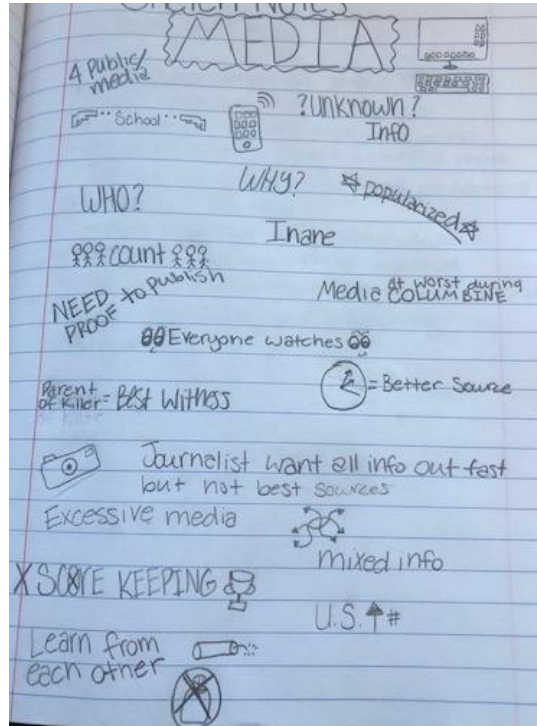 Sketch Notes
MEDIA
4 public/
media
School
?unknown?
Info
WHO?
WHY?
popularized
Inane
count
NEED to publish
PROOF
Media at worst during
COLUMBINE
Everyone watches
Parent
of killer = Best Witness
= Better Source
Journelist want all info out fast
but not best sources
Excessive media
mixed info
X SCORE KEEPING
U.S. ↑ #
Learn from
each other